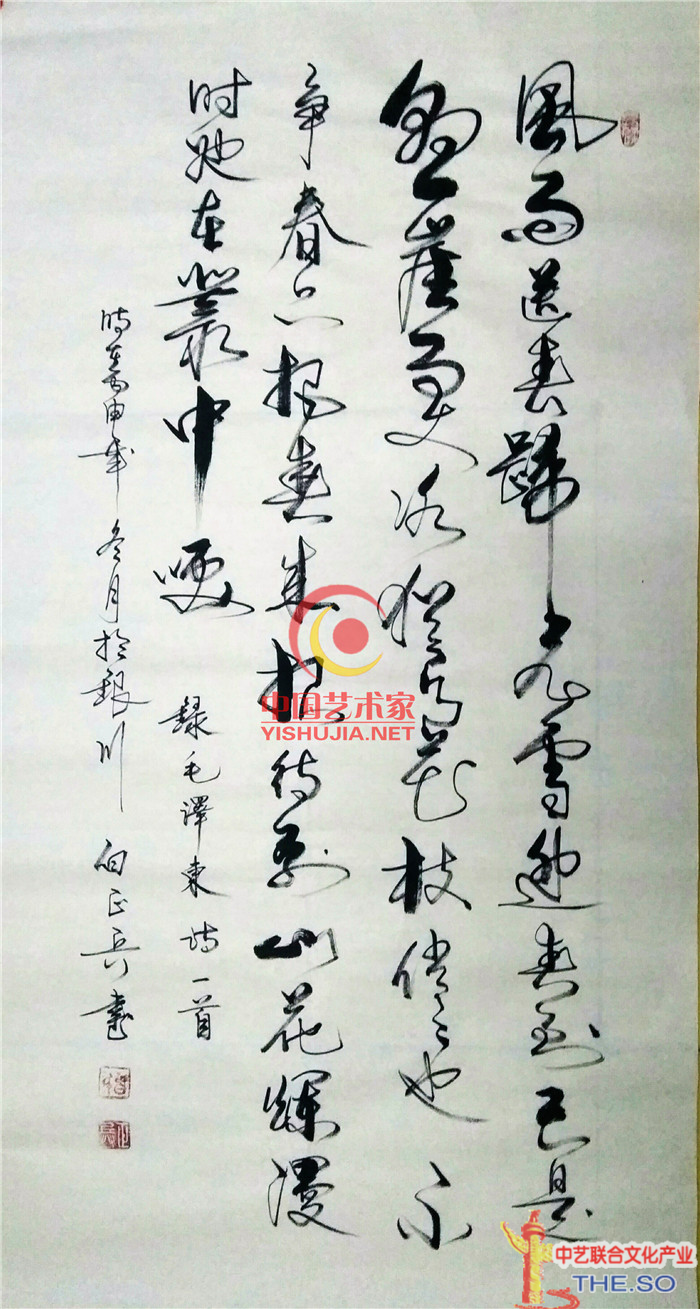 風雨送春歸飛雪迎春到已是
懸崖百丈冰猶有花枝俏々也不
争春只把春来报待到山花爛漫
时她在叢中笑
錄毛澤東诗一首
時在丙申年冬月於銀川正兵書
中国艺术家
YISHUJIA.NET
中艺联合文化产业
THE.SO